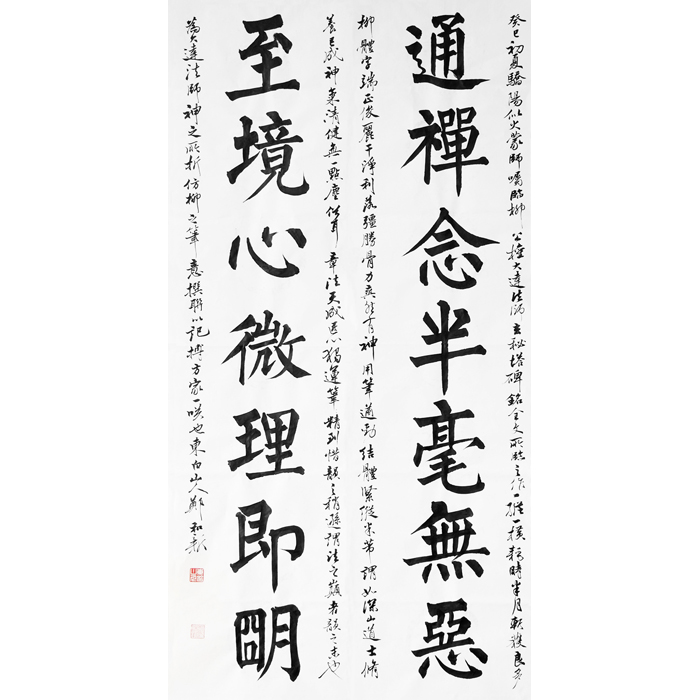 癸巳初夏驕陽似火蒙師囑臨柳公權大達法師玄秘塔碑銘全文所臨之作一樣時半月頗獲良多
通禪念半毫無惡
柳體字端正俊麗干淨利落疆勝骨力爽然有神用筆遒勁結體緊縱米芾謂如深山道士脩
養已成神氣清健無一點塵俗耳章法天成匠心獨運筆精到惜韻之稍遜謂法之巔者韻之末也
至境心微理即明
為大達法師神之所折仿柳之筆意撰聯以記搏方家一哂也東白山人鄭和新